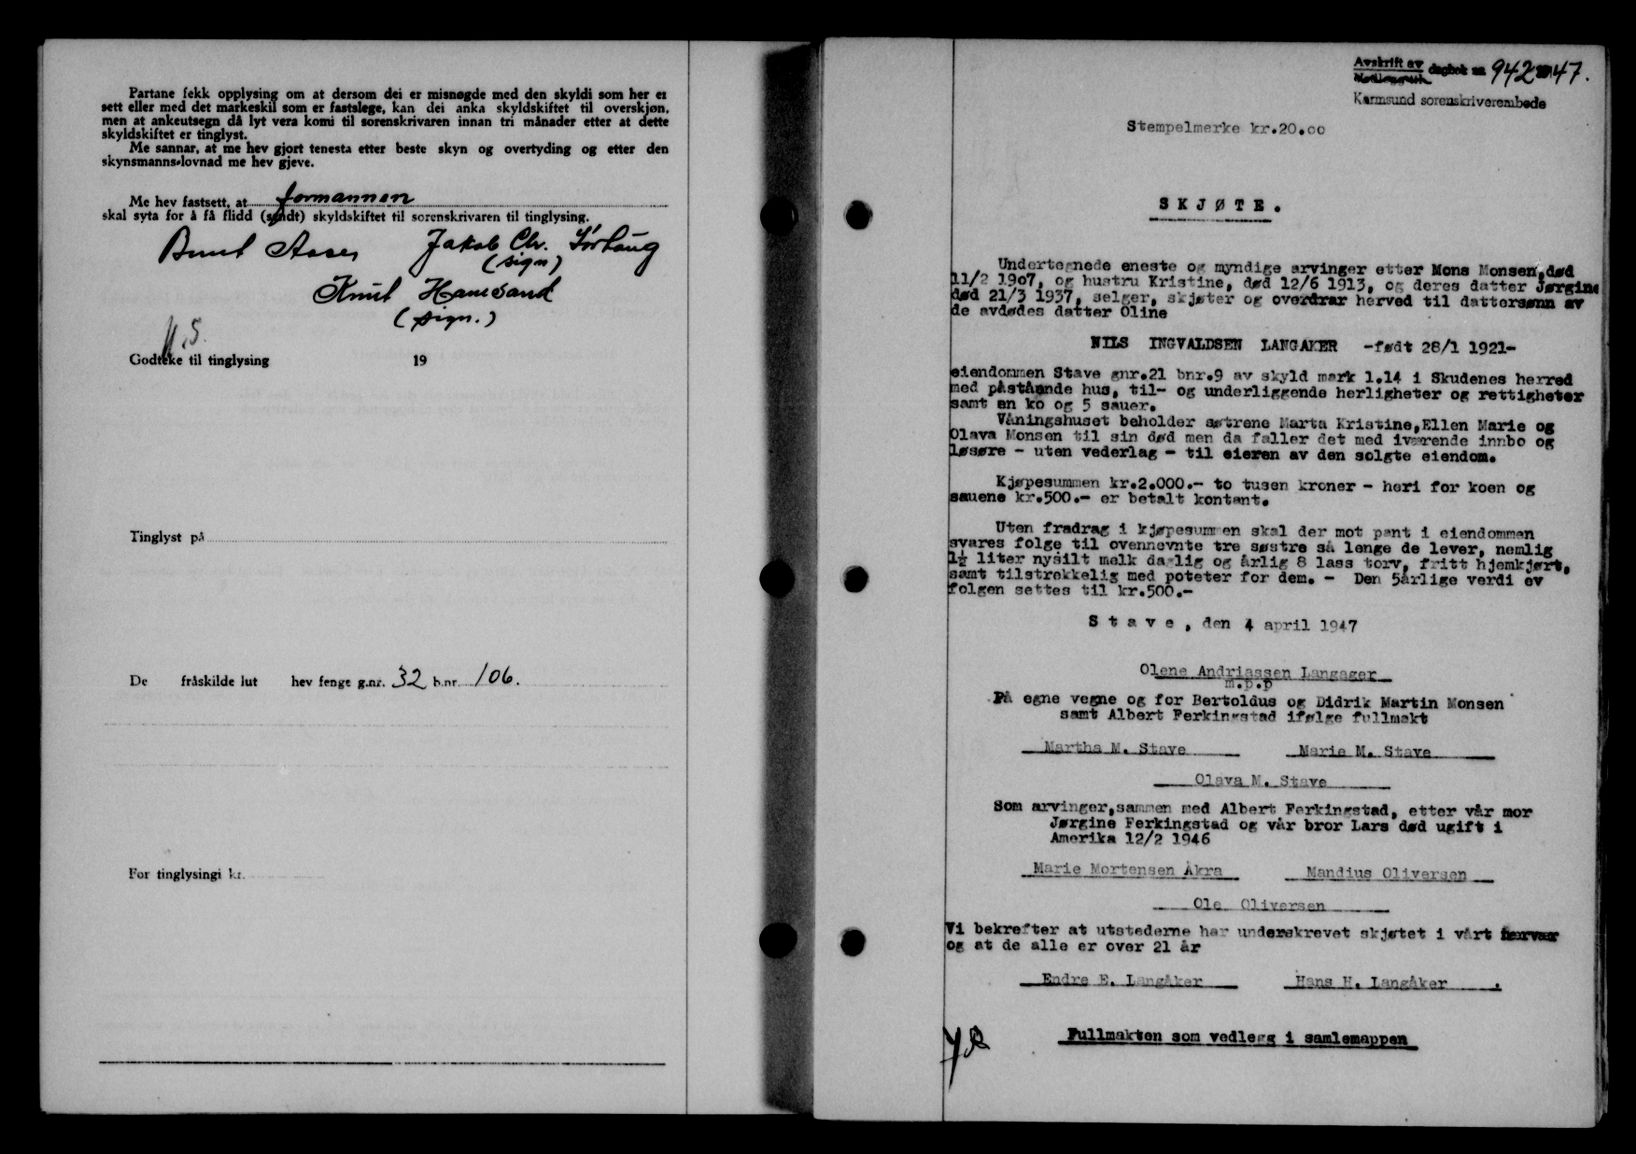 Partane fekk opplysing om at dersom dei er misnøgde med den skyldi som her er
sett eller med det markeskil som er fastslege, kan dei anka skyldskiftet til overskjøn,
men at ankeutsegn då lyt vera komi til sorenskrivaren innan tri månader etter at dette
skyldskiftet er tinglyst.
Me sannar, at me hev gjort tenesta etter beste skyn og overtyding og etter den
skynsmanns-lovnad me hev gjeve.
Me hev fastsett, at formannen
skal syta for å få flidd (sendt) skyldskiftet til sorenskrivaren til tinglysing.
Jakob Chr.
(sign)
Knut
(sign.)
Godteke til tinglysing 19
Tinglyst på
De fråskilde lut hev fenge g.nr. 32 b.nr. 106.
For tinglysingi kr.
Avskrift av dagbok nr 942 1947.
Karmsund sorenskriverembede
Stempelmerke kr.20.oo
SKJØTE.
Undertegnede eneste og myndige arvinger etter Mons Monsen,død
11/2 19o7, og hustru Kristine, død 12/6 1913, og deres datter Jørgine
død 21/3 1937, selger, skjøter og overdrar herved til dattersønn av
de avdødes datter Oline
NILS INGVALDSEN LANGAKER -født 28/1 1921-
eiendommen Stave gnr.21 bnr.9 av skyld mark 1.14 i Skudenes herred
med påstående hus, til- og underliggende herligheter og rettigheter
samt en ko og 5 sauer.
Våningshuset beholder søstrene Marta Kristine,Ellen Marie og
Olava Monsen til sin død men da faller det med iværende innbo og
løsøre - uten vederlag - til eieren av den solgte eiendom.
Kjøpesummen kr.2.000.- to tusen kroner - heri for koen og
sauene kr.500.- er betalt kontant.
Uten fradrag i kjøpesummen skal der mot pant i eiendommen
svares folge til ovennevnte tre søstre så lenge de lever, nemlig
1½ liter nysilt melk daglig og årlig 8 lass torv, fritt hjemkjørt,
samt tilstrekkelig med poteter for dem. - Den 5årlige verdi av
folgen settes til kr.500.-
Stave, den 4 april 1947
Olene Andriassen Langager
m.p.p
På egne vegne og for Bertoldus og Didrik Martin Monsen
samt Albert Ferkingstad ifølge fullmakt
Martha M. Stave Marie M. Stave
Olava M. Stave
Som arvinger,sammen med Albert Ferkingstad, etter vår mor
Jørgine Ferkingstad og vår bror Lars død ugift i
Amerika 12/2 1946
Marie Mortensen Åkra Mandius Oliversen
Ole Oliversen
Vi bekrefter at utstederne har underskrevet skjøtet i vårt nærvær
og at de alle er over 21 år
Endre E. Langåker Hans H. Langåker .
Fullmakten som vedlegg i samlemappen